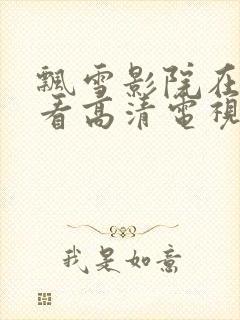 飄雪影院在
看高清電視
我是如意